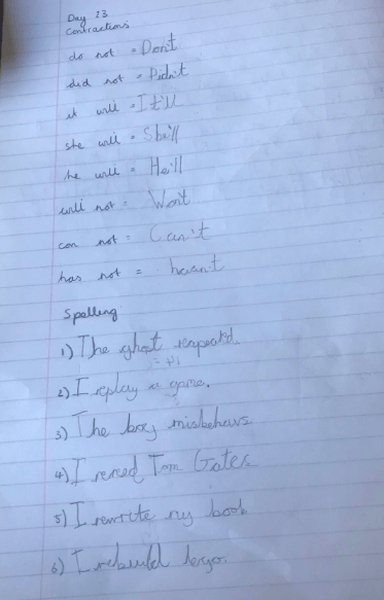 Day 23
Contractions
do not = Don't
did not = Didn't
it will = It'll
she will = She'll
he will = He'll
will not = Won't
can not = Can't
has not = hasn't
Spelling
1) The ghost reapeard.
2) I replay a game.
3) The boy misbehavs
4) I rered Tom Gates
5) I rewrite my book
6) I rebuild